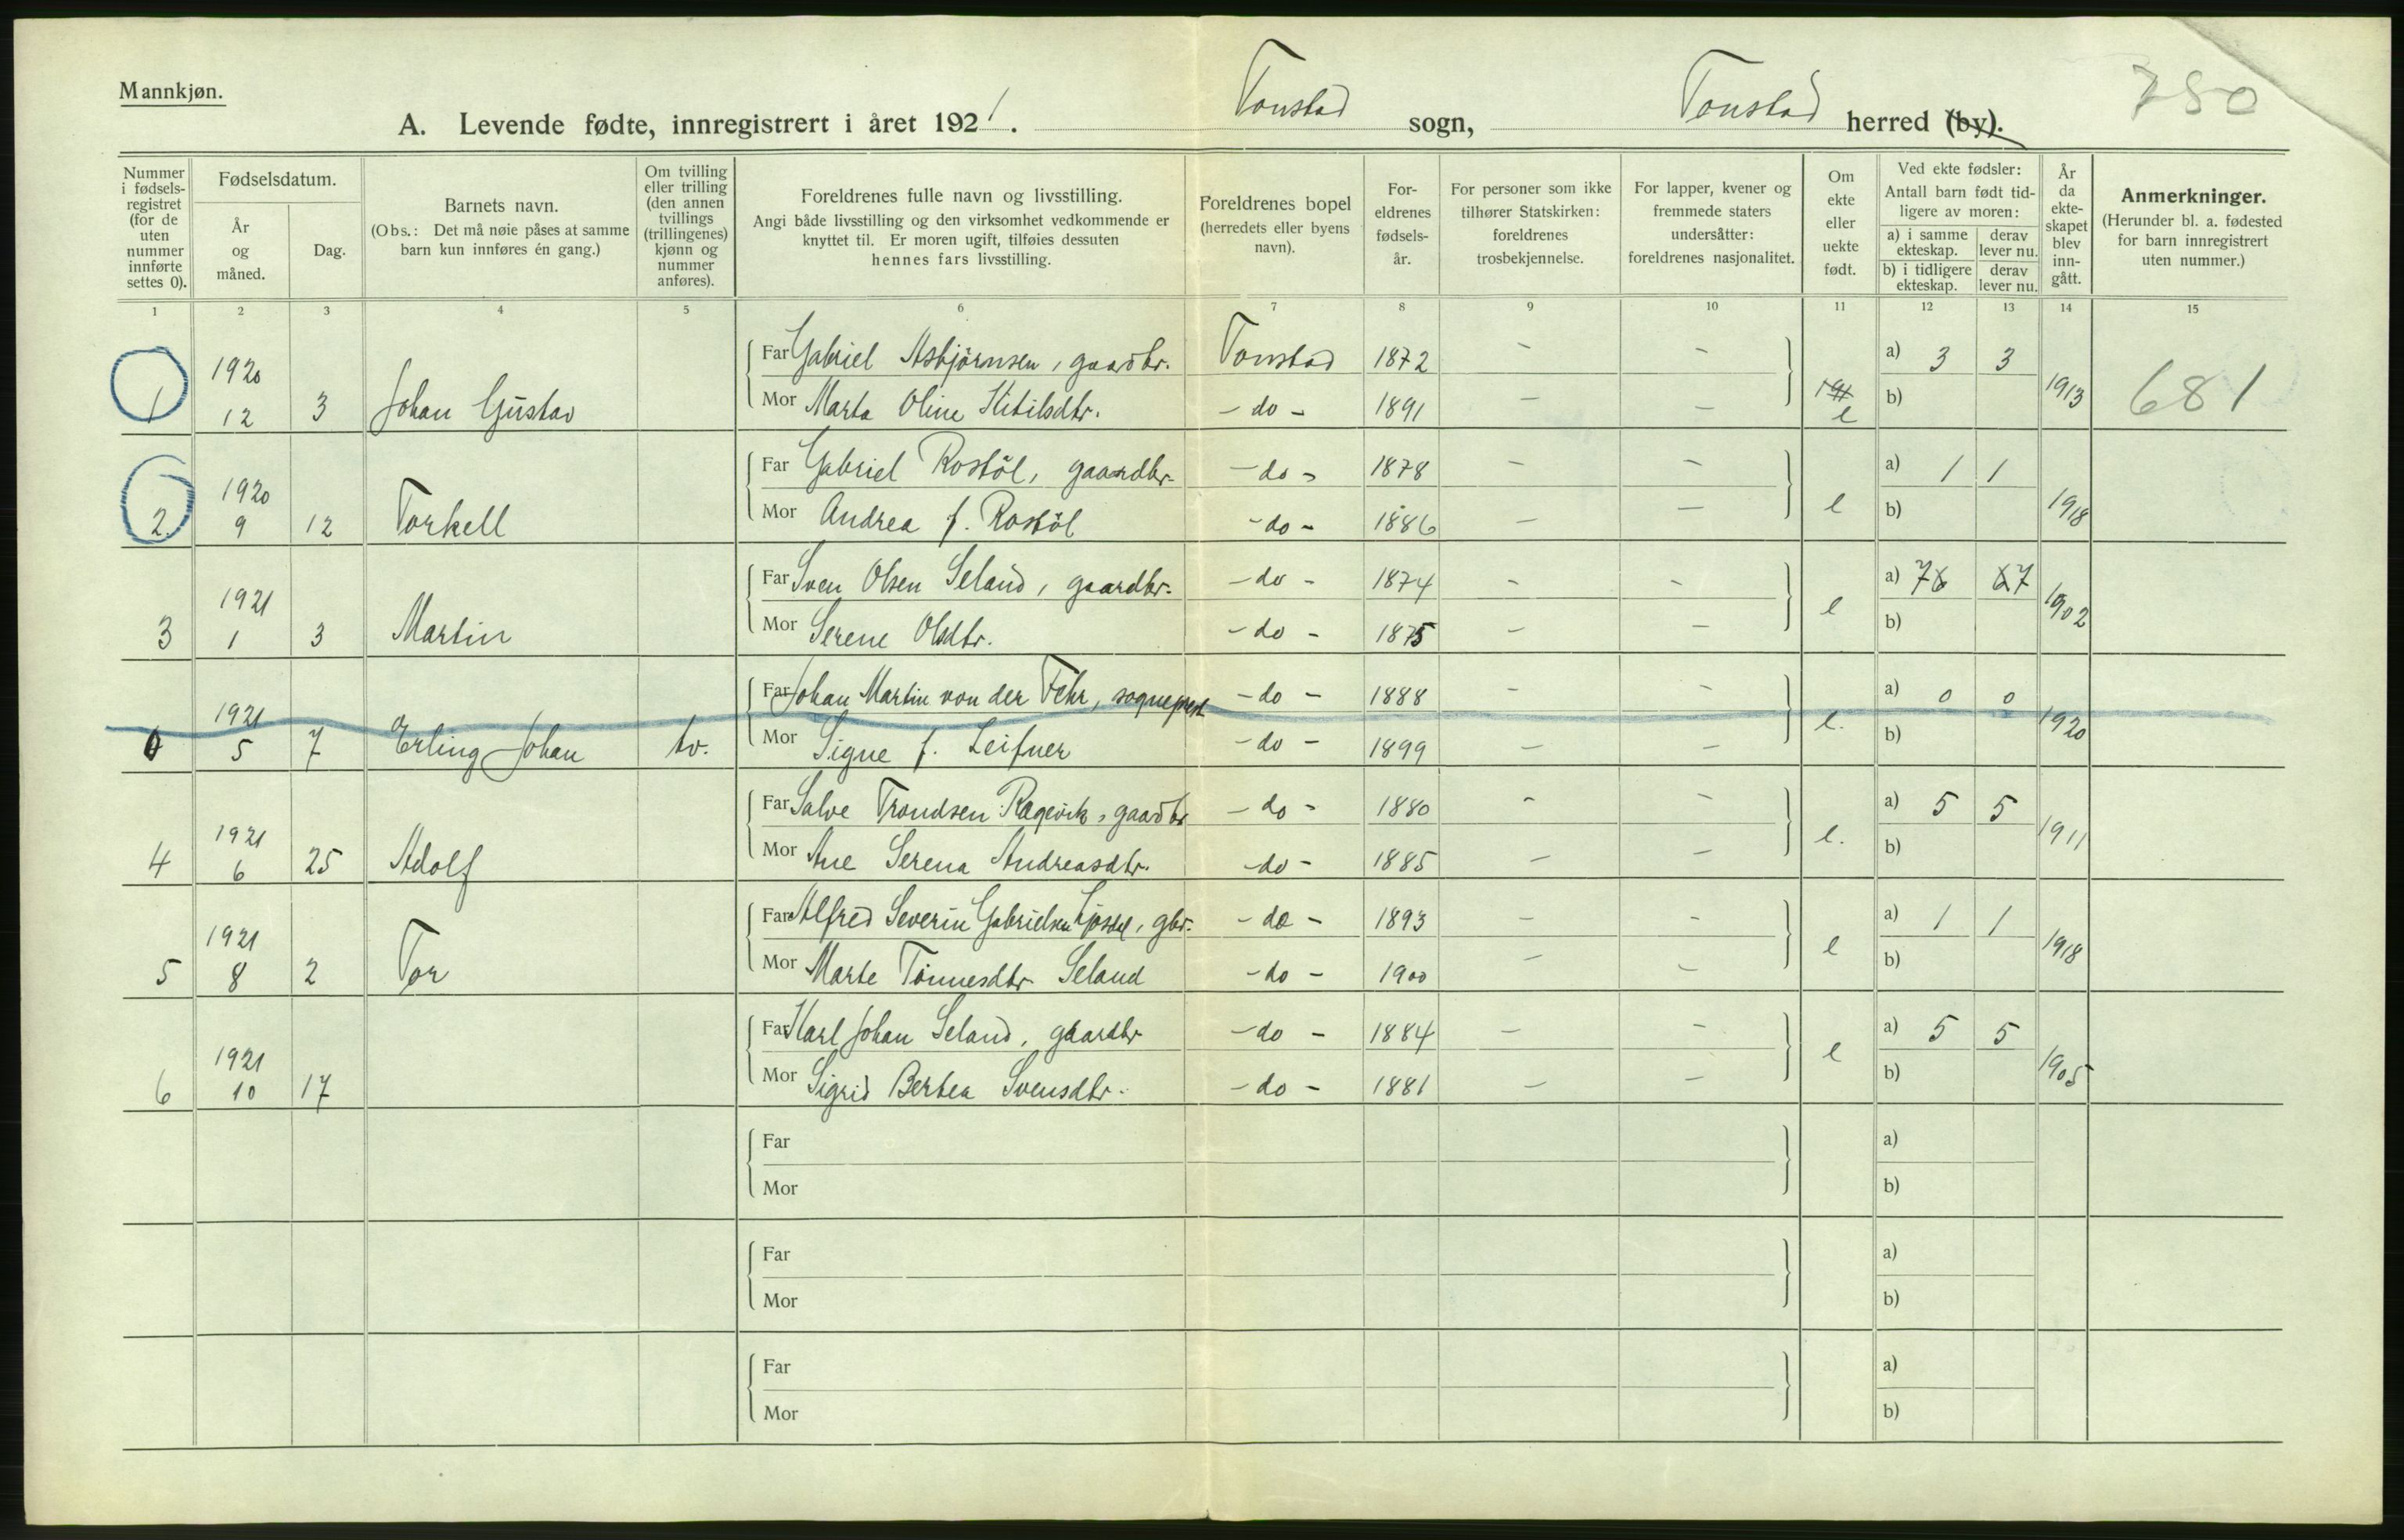 Mannkjøn.
A. Levende fødte, innregistrert i året 1921. Tonstad sogn, Tonstad herred (by).
750
Nummer i fødselsregistret (for de uten nummer innførte settes 0).
Fødselsdatum.
År og måned.
Dag.
Barnets navn.
(Obs.: Det må nøie påses at samme barn kun innføres én gang.)
Om tvilling eller trilling (den annen tvillings (trillingenes) kjønn og nummer anføres).
Foreldrenes fulle navn og livsstilling.
Angi både livsstilling og den virksomhet vedkommende er knyttet til. Er moren ugift, tilføies dessuten hennes fars livsstilling.
Foreldrenes bopel (herredets eller byens navn).
Foreldrenes fødselsår.
For personer som ikke tilhører Statskirken: foreldrenes trosbekjennelse.
For lapper, kvener og fremmede staters undersåtter: foreldrenes nasjonalitet.
Om ekte eller uekte født.
Ved ekte fødsler: Antall barn født tidligere av moren:
a) i samme ekteskap. derav lever nu.
b) i tidligere ekteskap. derav lever nu.
År da ekteskapet blev inngått.
Anmerkninger.
(Herunder bl. a. fødested for barn innregistrert uten nummer.)
1 2 3 4 5 6 7 8 9 10 11 12 13 14 15
1 1920 12 3 Johan Gustav
Far Gabriel Asbjörnsen, gaardbr. Tonstad 1872 - - a) 3 3
Mor Marta Oline Ketilsdtr. - do - 1891 - - e b) 1913 681
2. 1920 9 12 Torkell
Far Gabriel Rostöl, gaardbr. - do - 1878 - - a) 1 1
Mor Andrea f. Rostöl - do - 1886 - - e b) 1918
3 1921 1 3 Martin
Far Sven Olsen Seland, gaardbr. - do - 1874 - - a) 7 7
Mor Serene Olsdtr. - do - 1875 - - e b) 1902
0 1921 5 7 Erling Johan tv.
Far Johan Martin von der Fehr, sogneprest - do - 1888 - - a) 0 0
Mor Signe f. Leifner - do - 1899 - - e. b) 1920
4 1921 6 25 Adolf
Far Salve Trondsen Ragevik, gaardbr - do - 1880 - - a) 5 5
Mor Ane Serena Andreasdtr. - do - 1885 - - e. b) 1911
5 1921 8 2 Tor
Far Alfred Severin Gabrielsen, gbr. - do - 1893 - - a) 1 1
Mor Marte Tönnesdtr. Seland - do - 1900 - - e b) 1918
6 1921 10 17
Far Karl Johan Seland, gaardbr - do - 1884 - - a) 5 5
Mor Sigrid Bertea Svensdtr. - do - 1881 - - e b) 1905
Far a)
Mor b)
Far a)
Mor b)
Far a)
Mor b)